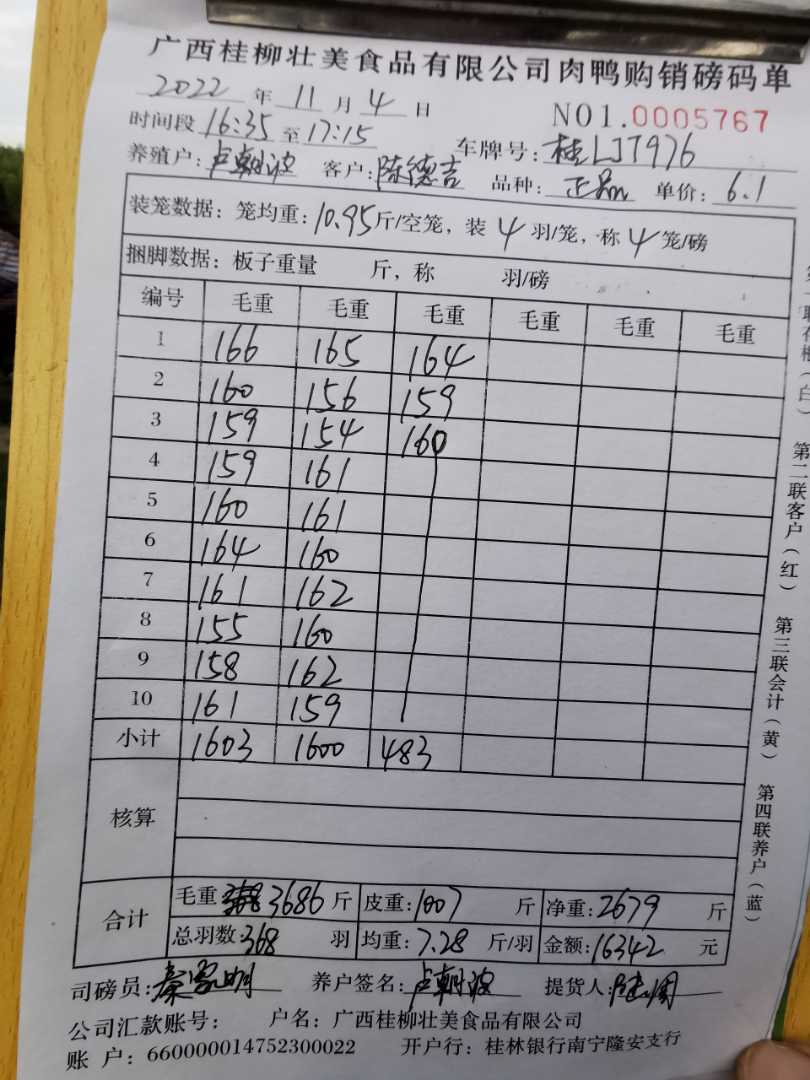 广西桂柳壮美食品有限公司肉鸭购销磅码单
2022 年 11 月 4 日
NO1.0005767
时间段 16:35 至 17:15
车牌号: 桂LJT976
养殖户: 卢朝波 客户: 陈德吉 品种: 正品 单价: 6.1
装笼数据: 笼均重: 10.95斤/空笼, 装 4 羽/笼, 称 4 笼/磅
捆脚数据: 板子重量 斤, 称 羽/磅
编号 毛重 毛重 毛重 毛重 毛重 毛重
1 166 165 164
2 160 156 159
3 159 154 160
4 159 161
5 160 161
6 164 160
7 161 162
8 155 160
9 158 162
10 161 159
小计 1603 1600 483
核算
合计
毛重 3686 斤 皮重: 1007 斤 净重: 2679 斤
总羽数: 368 羽 均重: 7.28 斤/羽 金额: 16342 元
司磅员: 秦家明 养户签名: 卢朝波 提货人:
公司汇款账号: 户名: 广西桂柳壮美食品有限公司
账 户: 660000014752300022 开户行: 桂林银行南宁隆安支行
(白) 第二联客户(红) 第三联会计(黄) 第四联养户(蓝)